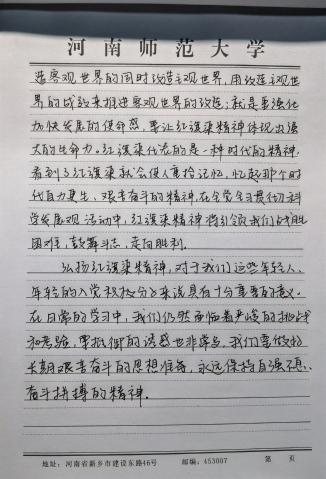 河南师范大学
造客观世界的同时改造主观世界,用改造主观世
界的成效来推进客观世界的改造;就是要强化
加快发展的使命感,要让红旗渠精神体现出强
大的生命力。红旗渠代表的是一种时代的精神,
看到了红旗渠就会使人重拾记忆,忆起那个时
代自力更生、艰苦奋斗的精神,在全党学习贯彻科
学发展观活动中,红旗渠精神将引领我们战胜
困难,鼓舞斗志,走向胜利。
弘扬红旗渠精神,对于我们这些年轻人、
年轻的入党积极分子来说具有十分重要的意义。
在日常的学习中,我们仍然面临着严峻的挑战
和考验,要抵御的诱惑也非常多,我们要做好
长期艰苦奋斗的思想准备,永远保持自强不息、
奋斗拼搏的精神。
地址:河南省新乡市建设东路46号 邮编:453007 第 页